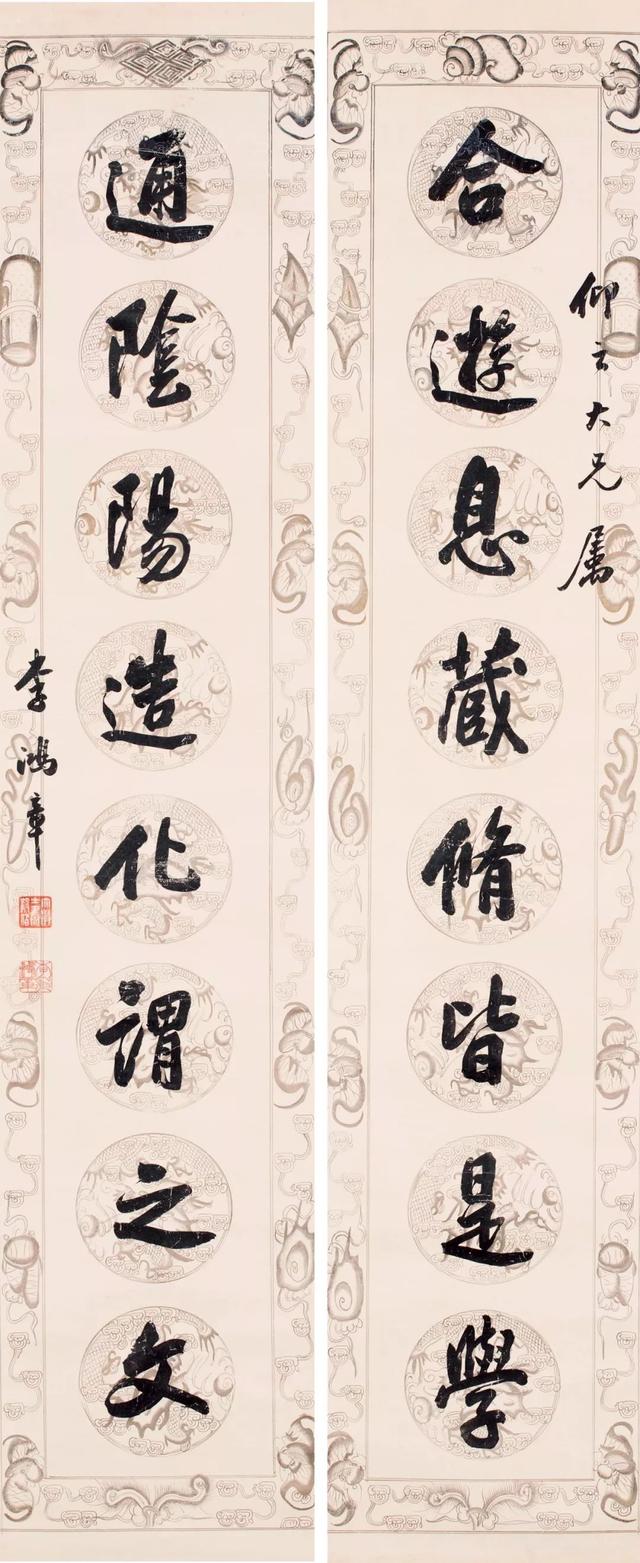 仰云大兄属
合遊息蔵脩皆是學
通陰陽造化謂之文
李鴻章